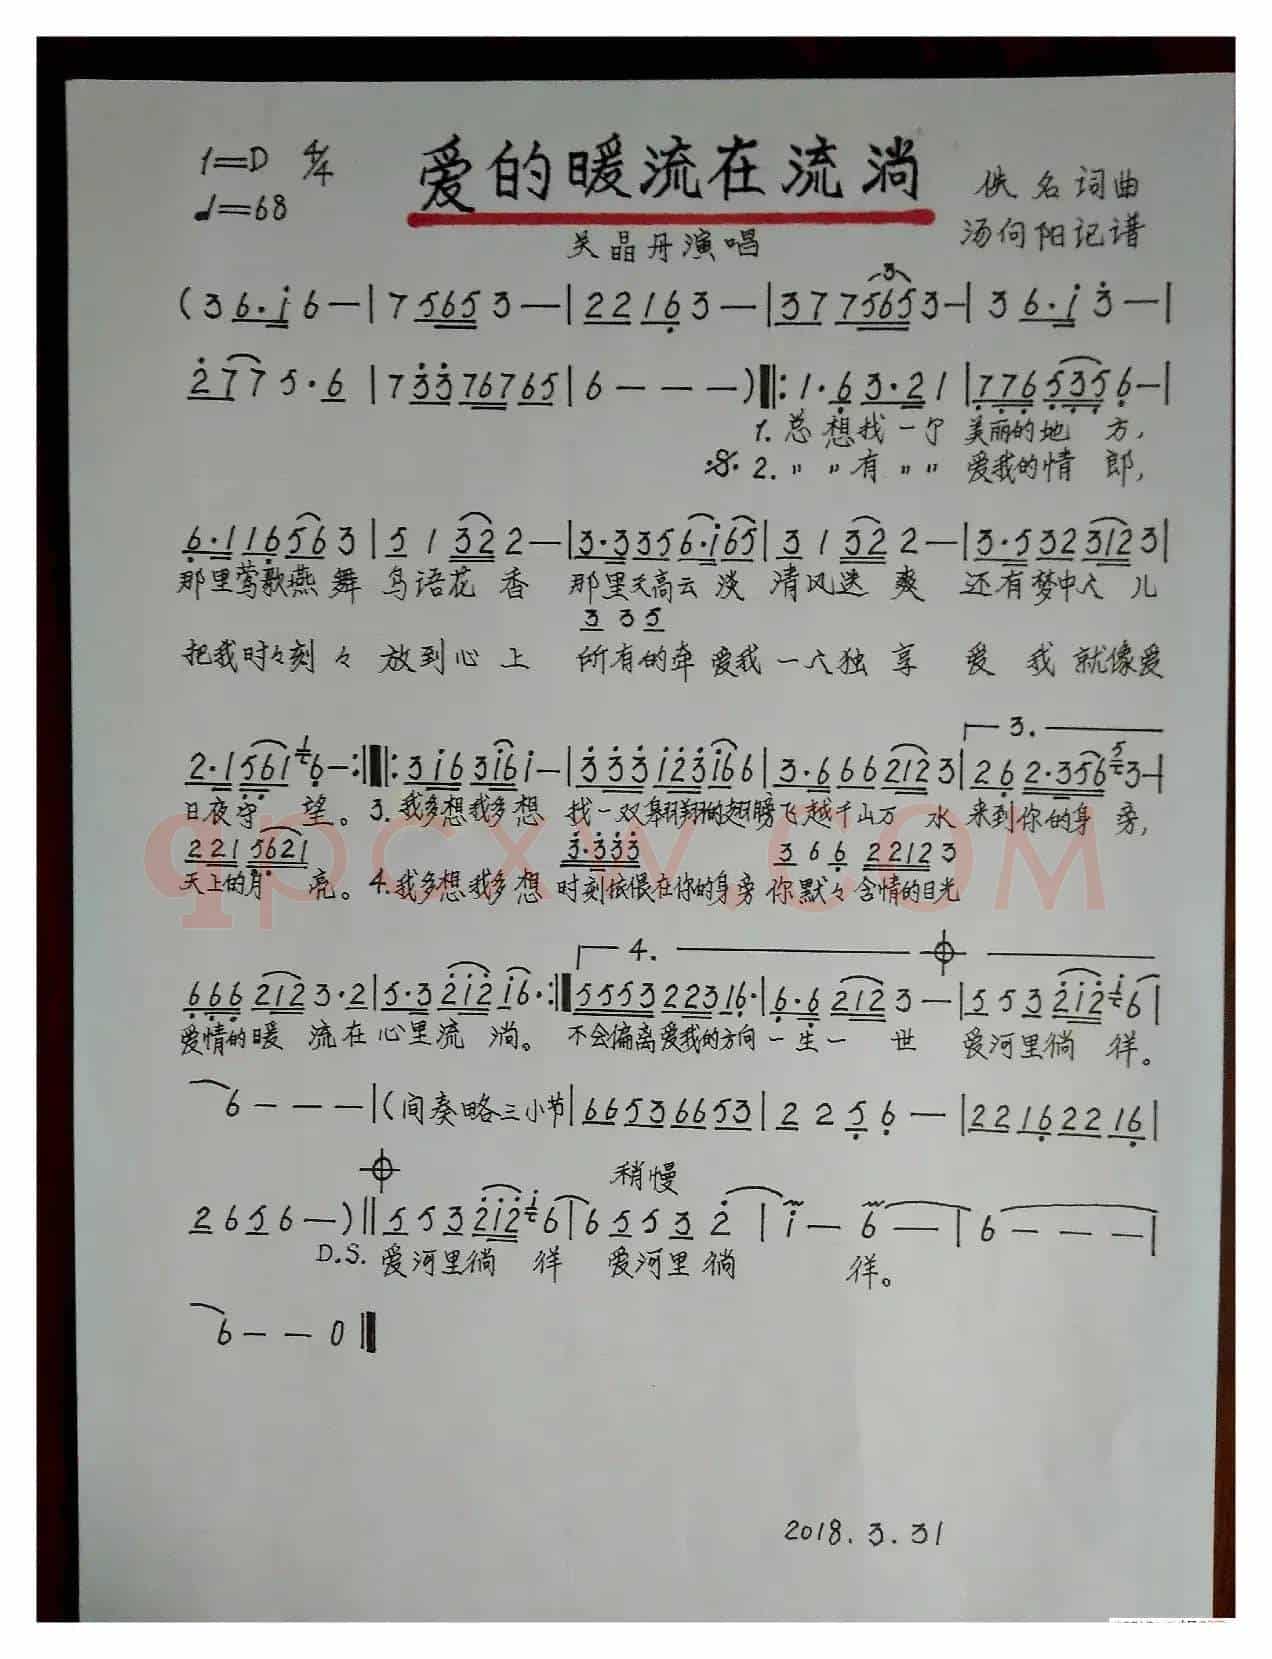 1=D 4/4
♩=68
爱的暖流在流淌
佚名词曲
汤向阳记谱
吴晶丹演唱
(3 6·i 6—|7 565 3—|22 16 3—|37 7565 3—|3 6·i 3—|
277 5·6|733 76765|6———)‖:1·6 3·2 1|776 535 6—|
1.总想找一个 美丽的地 方,
2.〃 〃有〃〃 爱我的情 郎,
6·1 16 563|5 1 32 2—|3·3 35 6·i 65|3 1 32 2—|3·5 32 312 3|
那里莺歌燕 舞 鸟语花 香 那里天高云 淡 清风送 爽 还有梦中人 儿
3 3 5
把我时々刻々 放到心上 所有的牵 爱我一人独 享 爱 我 就像爱
3.
2·1 561 6—:‖:3i6 3i6 i—|333 i23 i66|3·6 66 212 3|26 2·356 3—|
日夜守 望。3.我多想我多想 找一双翱翔的翅膀飞越千山万 水 来到你的身 旁,
221 5621 3·333 3 6 6 22123
天上的月 亮。4.我多想我多想 时刻依偎在你的身旁 你默々含情的目光
4.
666 212 3·2|5·3 2i2 i6·:‖5553 223 16·|6·6 212 3—|553 2i2 6|
爱情的暖 流在心里流 淌。 不会偏离爱我的方向 一生一 世 爱河里徜 徉。
6———|(间奏略三小节|6653 6653|2 2 5 6—|2216 2216|
稍慢
2 6 5 6—)‖553 2i2 6|6 5 5 3 2|i—6—|6———|
D.S. 爱河里徜 徉 爱河里徜 徉。
6——0‖
2018.3.31
qpcxw.COM